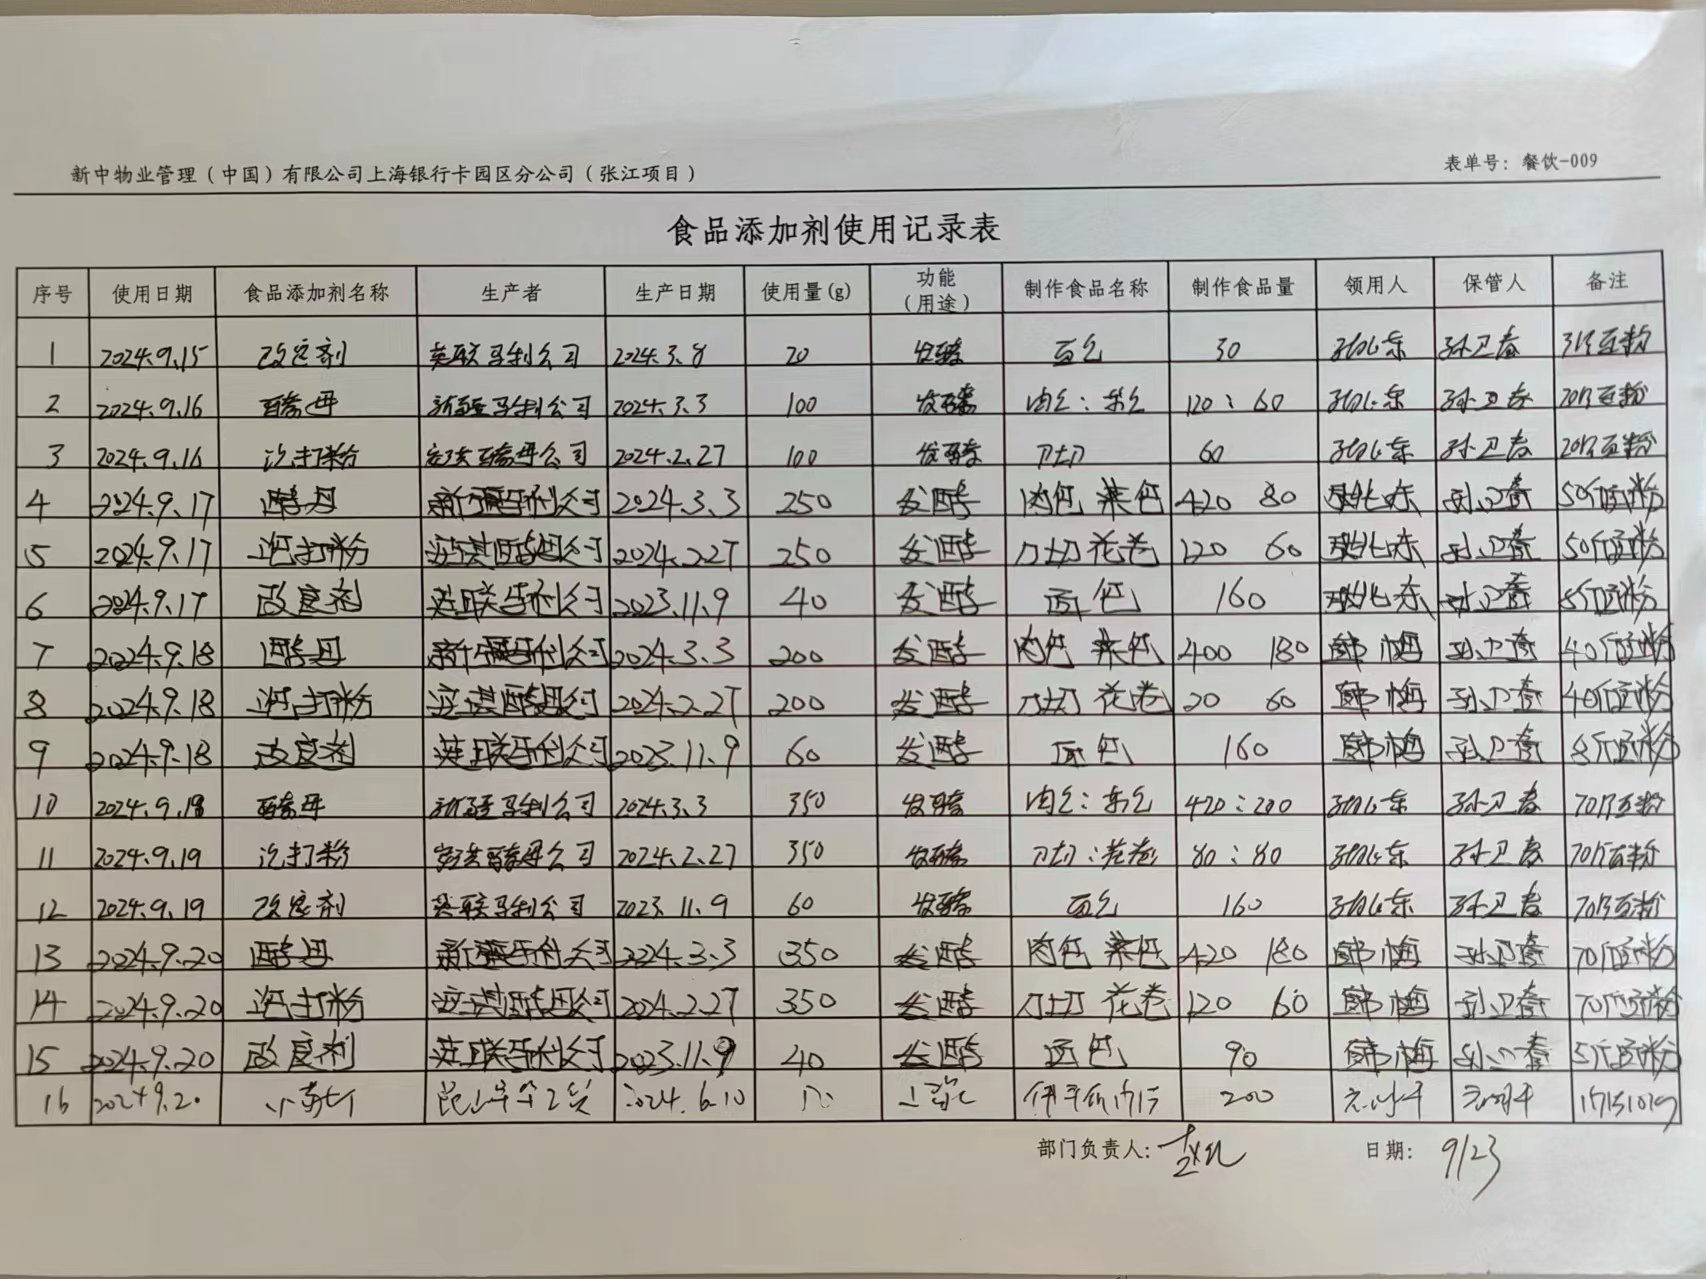 新中物业管理(中国)有限公司上海银行卡园区分公司(张江项目) 表单号: 餐饮-009
食品添加剂使用记录表
序号 使用日期 食品添加剂名称 生产者 生产日期 使用量(g) 功能(用途) 制作食品名称 制作食品量 领用人 保管人 备注
1 2024.9.15 改良剂 英联马利公司 2024.3.8 20 发酵 面包 30 孙卫春 3斤面粉
2 2024.9.16 酵母 新疆马利公司 2024.3.3 100 发酵 肉包:菜包 120:60 孙卫春 20斤面粉
3 2024.9.16 泡打粉 安琪酵母公司 2024.2.27 100 发酵 刀切 60 孙卫春 20斤面粉
4 2024.9.17 酵母 新疆马利公司 2024.3.3 250 发酵 肉包 菜包 420 80 孙卫春 50斤面粉
5 2024.9.17 泡打粉 安琪酵母公司 2024.2.27 250 发酵 刀切 花卷 120 60 孙卫春 50斤面粉
6 2024.9.17 改良剂 英联马利公司 2023.11.9 40 发酵 面包 160 孙卫春 5斤面粉
7 2024.9.18 酵母 新疆马利公司 2024.3.3 200 发酵 肉包 菜包 400 180 韩梅 孙卫春 40斤面粉
8 2024.9.18 泡打粉 安琪酵母公司 2024.2.27 200 发酵 刀切 花卷 20 60 韩梅 孙卫春 40斤面粉
9 2024.9.18 改良剂 英联马利公司 2023.11.9 60 发酵 面包 160 韩梅 孙卫春 8斤面粉
10 2024.9.19 酵母 新疆马利公司 2024.3.3 350 发酵 肉包:菜包 420:200 孙卫春 70斤面粉
11 2024.9.19 泡打粉 安琪酵母公司 2024.2.27 350 发酵 刀切:花卷 80:80 孙卫春 70斤面粉
12 2024.9.19 改良剂 英联马利公司 2023.11.9 60 发酵 面包 160 孙卫春 70斤面粉
13 2024.9.20 酵母 新疆马利公司 2024.3.3 350 发酵 肉包 菜包 420 180 韩梅 孙卫春 70斤面粉
14 2024.9.20 泡打粉 安琪酵母公司 2024.2.27 350 发酵 刀切 花卷 120 60 韩梅 孙卫春 70斤面粉
15 2024.9.20 改良剂 英联马利公司 2023.11.9 40 发酵 面包 90 韩梅 孙卫春 5斤面粉
16 2024.9.20 2024.6.10 200
部门负责人: 日期: 9/23